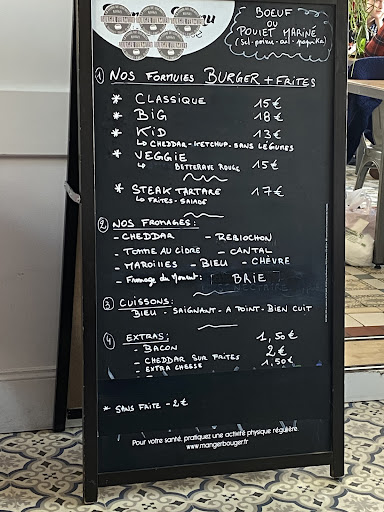 BOEUF
OU
POULET MARINÉ
(Sel - poivre - ail - paprika)
1) NOS FORMULES BURGER + FRITES
* CLASSIQUE 15€
* BIG 18€
* KID 13€
↳ CHEDDAR - KETCHUP - SANS LÉGUMES
* VEGGIE
↳ BETTERAVE ROUGE 15€
* STEAK TARTARE 17€
↳ FRITES - SALADE
2) NOS FROMAGES:
- CHEDDAR - REBLOCHON
- TOMME AU CIDRE - CANTAL
- MAROILLES - BLEU - CHÈVRE
- Fromage du Moment: BRIE
3) CUISSONS:
BLEU - SAIGNANT - A POINT - BIEN CUIT
4) EXTRAS: 1,50€
- BACON
- CHEDDAR SUR FRITES 2€
- EXTRA CHEESE 1,50€
* SANS FRITE - 2€
Pour votre santé, pratiquez une activité physique régulière.
www.mangerbouger.fr